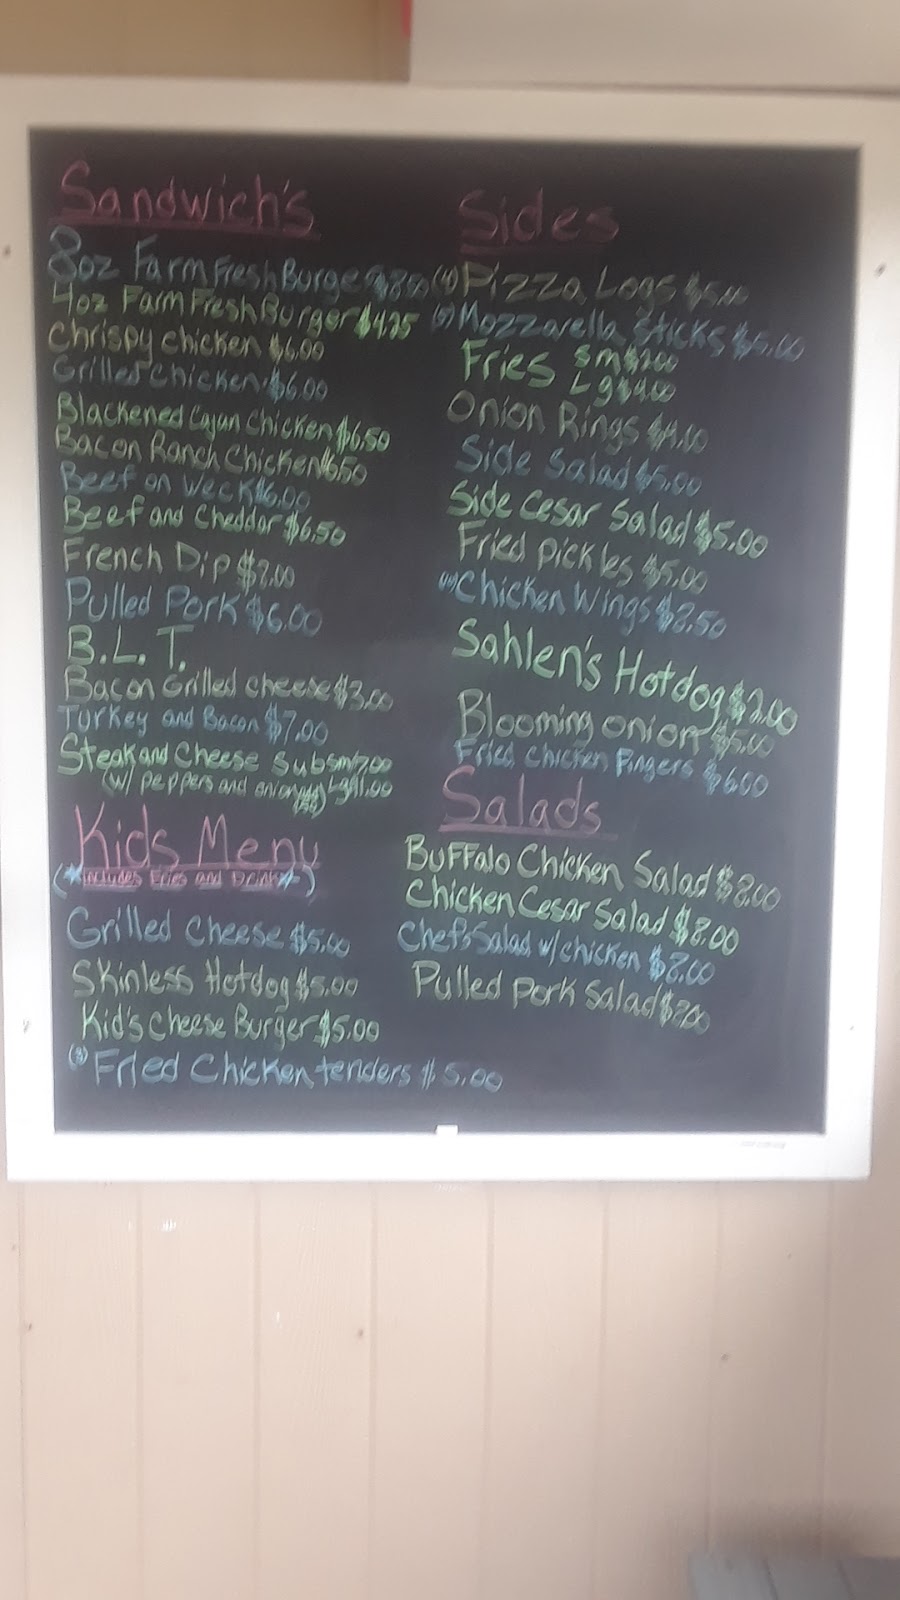 Sandwich's
8oz Farm Fresh Burger $8.00
4oz Farm Fresh Burger $4.25
Chrispy chicken $6.00
Grilled Chicken $6.00
Blackened Cajun Chicken $6.50
Bacon Ranch Chicken $6.50
Beef on Weck $6.00
Beef and Cheddar $6.50
French Dip $8.00
Pulled Pork $6.00
B.L.T.
Bacon Grilled cheese $3.00
Turkey and Bacon $7.00
Steak and Cheese Sub sm
(w/ peppers and Lg
Kids Menu
(*includes Fries and Drink*)
Grilled Cheese $5.00
Skinless Hotdog $5.00
Kid's Cheese Burger $5.00
(3) Fried Chicken tenders $5.00
Sides
(4) Pizza Logs $5.00
Mozzarella Sticks $5.00
Fries Sm $2.00
Lg $4.00
Onion Rings $4.00
Side Salad $5.00
Side Cesar Salad $5.00
Fried pickles $5.00
Chicken Wings $8.50
Sahlen's Hotdog $2.00
Blooming onion $5.00
Fried Chicken Fingers $6.00
Salads
Buffalo Chicken Salad $8.00
Chicken Cesar Salad $8.00
Chef's Salad w/ chicken $8.00
Pulled pork Salad